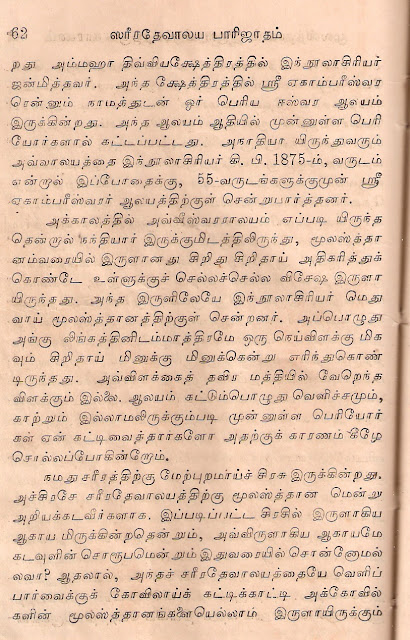 62 ஸரீரதேவாலய பாரிஜாதம்
றது. அம்மஹா திவ்வியக்ஷேத்திரத்தில் இந்நூலாசிரியர்
ஜன்மித்தவர். அந்த க்ஷேத்திரத்தில் ஸ்ரீ ஏகாம்பரீஸ்வர
ரென்னும் நாமத்துடன் ஓர் பெரிய ஈஸ்வர ஆலயம்
இருக்கின்றது. அந்த ஆலயம் ஆதியில் முன்னுள்ள பெரி
யோர்களால் கட்டப்பட்டது. அநாதியா யிருந்துவரும்
அவ்வாலயத்தை இந்நூலாசிரியர் கி. பி. 1875-ம், வருடம்
என்றால் இப்போதைக்கு, 55-வருடங்களுக்குமுன் ஸ்ரீ
ஏகாம்பரீஸ்வரர் ஆலயத்திற்குள் சென்றுபார்த்தனர்.
அக்காலத்தில் அவ்வீஸ்வரராலயம் எப்படி யிருந்த
தென்றால் நந்தியார் இருக்குமிடத்திலிருந்து, மூலஸ்த்தா
னம்வரையில் இருளானது கிறிது கிறிதாய் அதிகரித்துக்
கொண்டே உள்ளுக்குச் செல்லச்செல்ல விசேஷ இருளா
யிருந்தது. அந்த இருளிலேயே இந்நூலாசிரியர் மெது
வாய் மூலஸ்த்தானத்திற்குள் சென்றனர். அப்பொழுது
அங்கு லிங்கத்தினிடம்மாத்திரமே ஒரு நெய்விளக்கு மிக
வும் கிறிதாய் மினுக்கு மினுக்கென்று எரிந்துகொண்
டிருந்தது. அவ்விளக்கைத் தவிர மத்தியில் வேறெந்த
விளக்கும் இல்லை. ஆலயம் கட்டும்பொழுது வெளிச்சமும்,
காற்றும் இல்லாமலிருக்கும்படி முன்னுள்ள பெரியோர்
கள் ஏன் கட்டிவைத்தார்களோ அதற்குக் காரணம் கீழே
சொல்லப்போகின்றோம்.
நமது சரீரத்திற்கு மேற்புறமாய்ச் சிரசு இருக்கின்றது.
அச்சிரசே சரீரதேவாலயத்திற்கு மூலஸ்த்தான மென்று
அறியக்கடவீர்களாக. இப்படிப்பட்ட சிரசில் இருளாகிய
ஆகாய மிருக்கின்றதென்றும், அவ்விருளாகிய ஆகாயமே
கடவுளின் சொரூபமென்றும் இதுவரையில் சொன்னோமல்
லவா? ஆதலால், அந்தச் சரீரதேவாலயத்தையே வெளிப்
பார்வைக்குக் கோவிலாய்க் கட்டிக்காட்டி அக்கோவில்
களின் மூலஸ்த்தானங்களையெல்லாம் இருளாயிருக்கும்